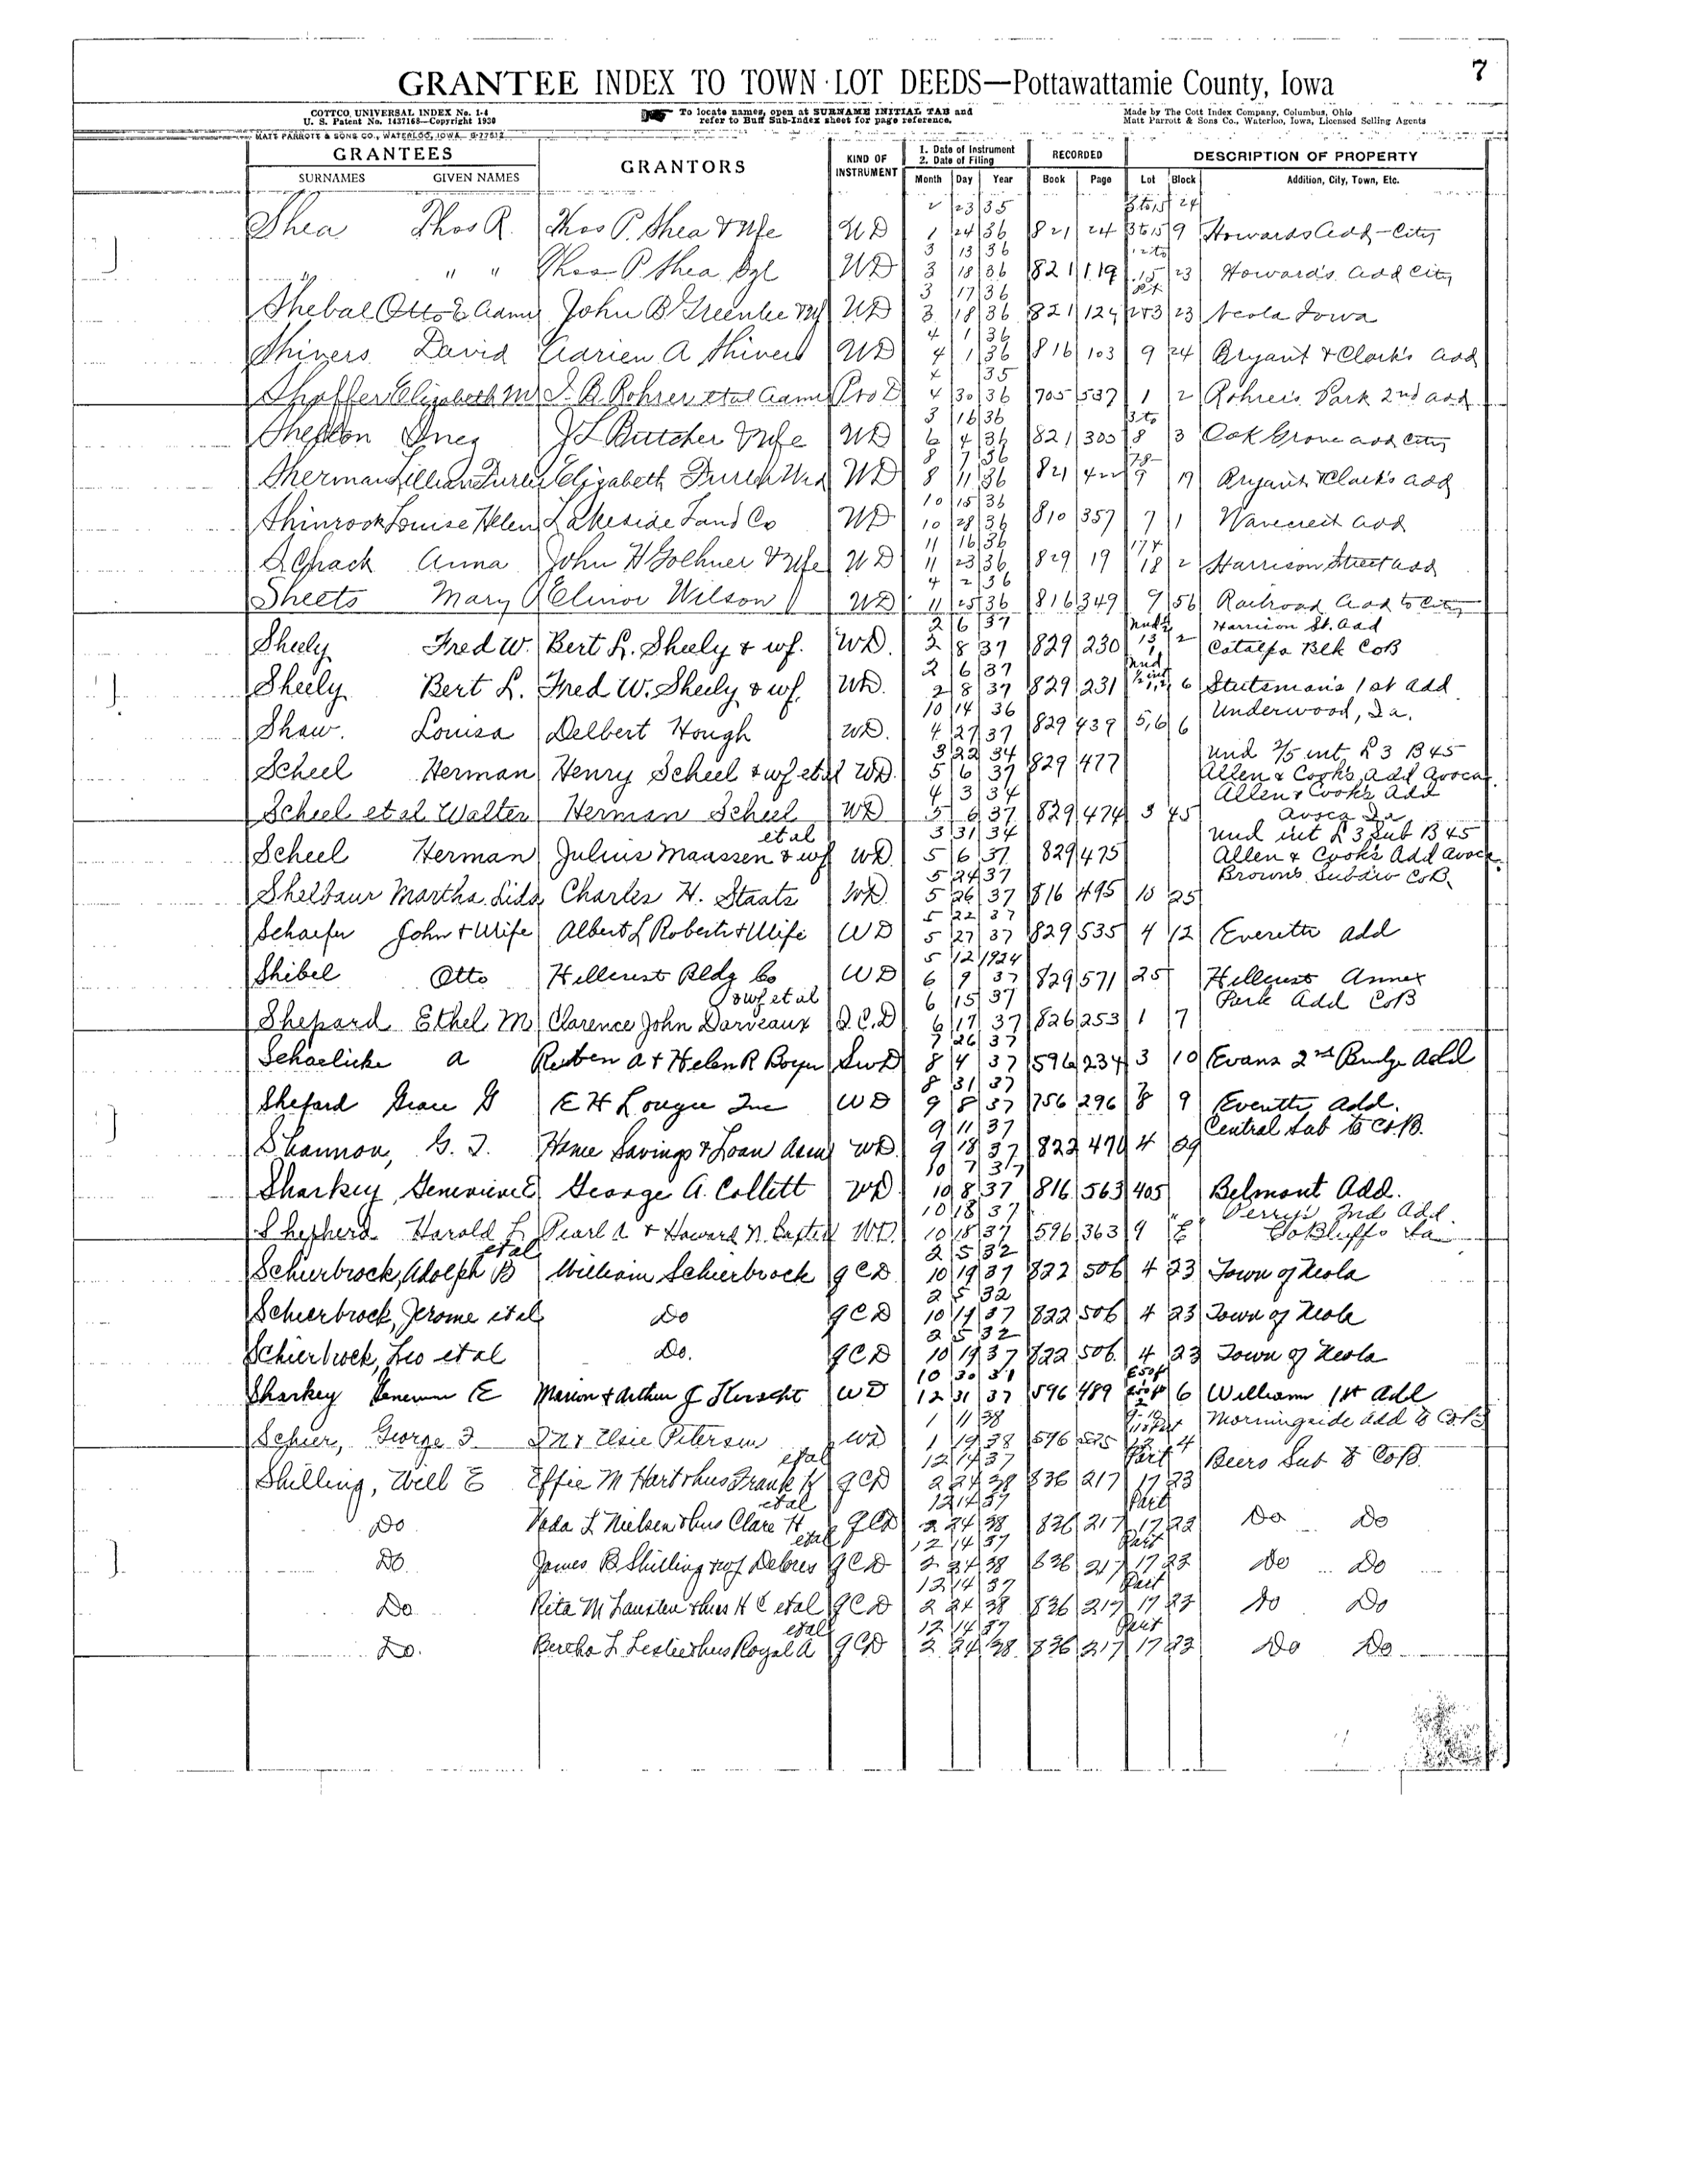 7
GRANTEE INDEX TO TOWN LOT DEEDS—Pottawattamie County, Iowa
COTTCO UNIVERSAL INDEX No. I-4
U. S. Patent No. 1437168—Copyright 1930
To locate names, open at SURNAME INITIAL TAB and
refer to Buff Sub-Index sheet for page reference.
Made by The Cott Index Company, Columbus, Ohio
Matt Parrott & Sons Co., Waterloo, Iowa, Licensed Selling Agents
MATT PARROTT & SONS CO., WATERLOO, IOWA
GRANTEES GRANTORS KIND OF INSTRUMENT 1. Date of Instrument 2. Date of Filing RECORDED DESCRIPTION OF PROPERTY
SURNAMES GIVEN NAMES Month Day Year Book Page Lot Block Addition, City, Town, Etc.
2 23 35 24
Shea Thos R. Thos P. Shea & Wfe WD 1 24 36 821 24 3 to 15 9 Howards Add - City
3 13 36
" " " Thos P Shea Sgl WD 3 18 36 821 119 15 23 Howard's Add City
3 17 36
Shebal Otto E Admr John B Greenlee WD 3 18 36 821 124 2&3 23 Neola Iowa
4 1 36
Shivers David Adrien A Shivers WD 4 1 36 816 103 9 24 Bryant & Clark's Add
4 35
Shaffer Elizabeth M S. B. Rohrer et al Admr Pro D 4 30 36 705 537 1 2 Rohrer's Park 2nd Add
3 16 36 3 to
Inez J L Buttcher & Wife WD 6 4 36 821 305 8 3 Oak Grove Add City
8 7 36
Sherman Lillian Elizabeth WD 8 11 36 821 9 Bryant & Clark's Add
10 15 36
Shinrock Louise Helen Lakeside Land Co WD 10 28 36 810 357 7 1 Wavecrest Add
11 16 36
Anna John H WD 11 23 36 829 19 18 2 Harrison Street Add
4 2 36
Sheets Mary O Elinor Wilson WD 11 25 36 816 349 9 56 Railroad Add to City
2 6 37 Harrison St. Add
Sheely Fred W. Bert L. Sheely & wf. WD. 2 8 37 829 230 13 2 Catalpa Blk CoB
2 6 37 Und
Sheely Bert L. Fred W. Sheely & wf. WD. 2 8 37 829 231 6 Stutsman's 1st Add
10 14 36 Underwood, Ia.
Shaw. Louisa Delbert Hough WD. 4 27 37 829 439 5,6 6
3 22 34 Und 2/5 int, L 3 B 45
Scheel Herman Henry Scheel & wf et al WD. 5 6 37 829 477 Allen & Cook's Add Avoca
4 3 34 Allen & Cook's Add
Scheel et al Walter Herman Scheel WD 5 6 37 829 474 3 45 Avoca Ia
et al 3 31 34 Und int L 3 Sub B 45
Scheel Herman Julius Maassen & wf WD. 5 6 37 829 475 Allen & Cook's Add Avoca
5 24 37 Browns Subdiv CoB.
Shelbaur Martha Lida Charles H. Staats WD. 5 26 37 816 495 10 25
5 22 37
Schaefer John & Wife Albert L Roberts & Wife WD 5 27 37 829 535 4 12 Everetts Add
5 12 1924
Shibel Otto Hillcrest Bldg Co WD 6 9 37 829 571 25 Hillcrest Annex
& wf et al 6 15 37 Park Add CoB
Shepard Ethel M Clarence John Darveaux Q.C.D 6 17 37 826 253 1 7
7 26 37
Schaelicke A Reuben A & Helen R Boyer SwD 8 4 37 596 234 3 10 Evans 2nd Bridge Add
8 31 37
Shefard Grace G E H Lougee Inc WD 9 8 37 756 296 8 9 Everetts Add.
9 11 37 Central Sub to CoB.
Shannon, G. I. Home Savings & Loan Assn WD. 9 18 37 822 470 4 29
10 7 37
Sharkey Genevieve E George A. Collett WD 10 8 37 816 563 405 Belmont Add.
10 18 37 Perry's 2nd Add.
Shepherd Harold L Pearl A & Howard N. Baxter WD. 10 18 37 596 363 9 "E" Co Bluffs Ia
et al 2 5 32
Schierbrock, Adolph B William Schierbrock QCD 10 19 37 822 506 4 23 Town of Neola
2 5 32
Schierbrock, Jerome et al Do QCD 10 19 37 822 506 4 23 Town of Neola
2 5 32
Schierbrock, Leo et al Do. QCD 10 19 37 822 506 4 23 Town of Neola
10 30 31
Sharkey E Marion & Arthur J WD 12 31 37 596 489 6 William 1st Add
1 11 38 Morningside Add to CoB
Schier, George I & Elsie Petersen WD 1 19 38 596 525 4
et al 12 14 37 Part Beers Sub to CoB.
Shilling, Will E Effie M Hart & hus Frank K QCD 2 24 38 836 217 17 23
et al 12 14 37 Part
Do Veda L Nielsen & hus Clare H QCD 2 24 38 836 217 17 23 Do Do
et al 12 14 37 Part
Do James B Shilling & wf Delores QCD 2 24 38 836 217 17 23 Do Do
12 14 37 Part
Do Rita M & hus H C et al QCD 2 24 38 836 217 17 23 Do Do
et al 12 14 37 Part
Do. Bertha L Leslie & hus Royal A QCD 2 24 38 836 217 17 23 Do Do